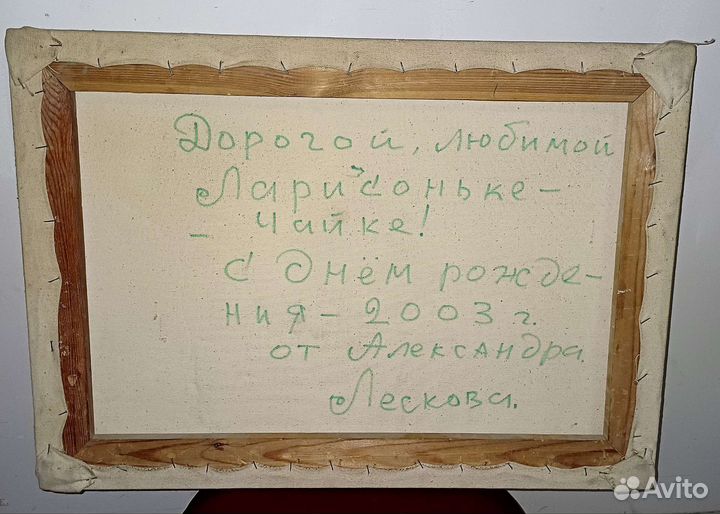 Дорогой, любимой
Ларисоньке -
- Чайке!
С Днём рожде-
ния - 2003 г.
от Александра
Лескова.
Avito